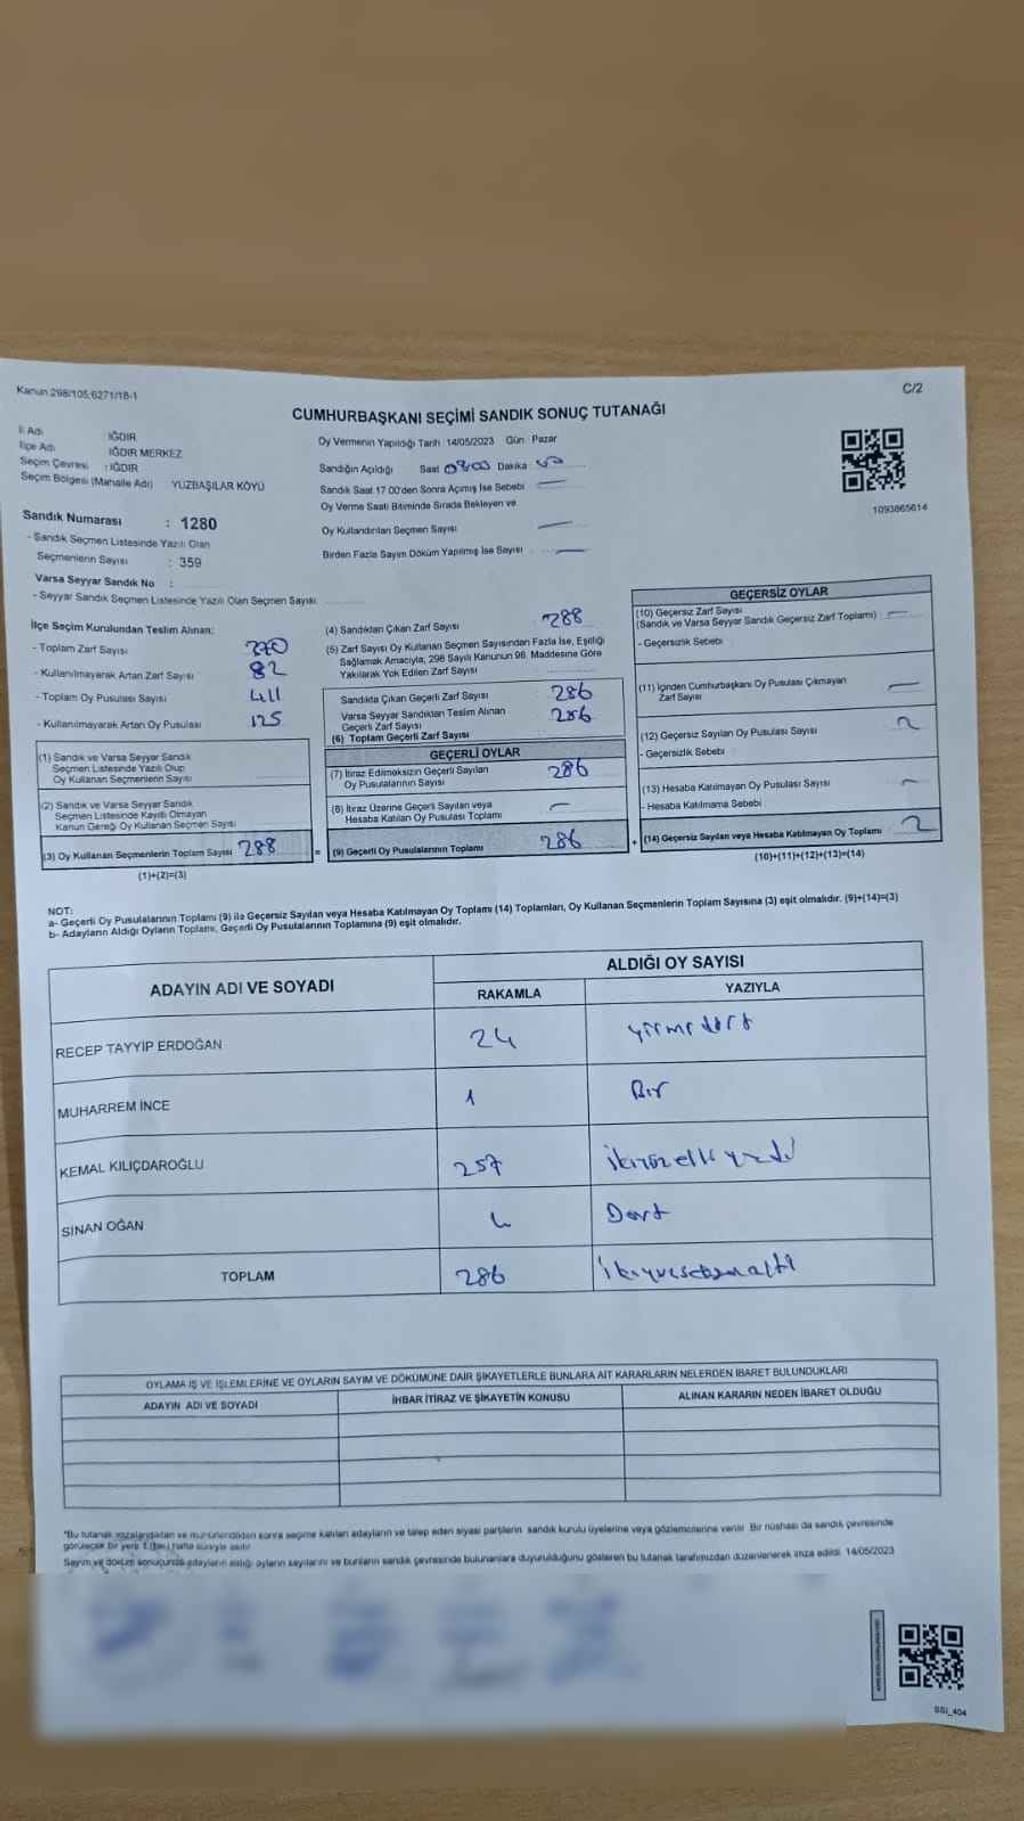 Kanun 298/105;6271/18-1
C/2
CUMHURBAŞKANI SEÇİMİ SANDIK SONUÇ TUTANAĞI
İl Adı : IĞDIR
İlçe Adı : IĞDIR MERKEZ
Seçim Çevresi : IĞDIR
Seçim Bölgesi (Mahalle Adı) YÜZBAŞILAR KÖYÜ
Sandık Numarası : 1280
- Sandık Seçmen Listesinde Yazılı Olan
Seçmenlerin Sayısı : 359
Varsa Seyyar Sandık No :
- Seyyar Sandık Seçmen Listesinde Yazılı Olan Seçmen Sayısı:
Oy Vermenin Yapıldığı Tarih : 14/05/2023 Gün : Pazar
Sandığın Açıldığı Saat 0800 Dakika
Sandık Saat 17:00'den Sonra Açılmış İse Sebebi
Oy Verme Saati Bitiminde Sırada Bekleyen ve
Oy Kullandırılan Seçmen Sayısı
Birden Fazla Sayım Döküm Yapılmış İse Sayısı
1093865614
İlçe Seçim Kurulundan Teslim Alınan:
- Toplam Zarf Sayısı 370
- Kullanılmayarak Artan Zarf Sayısı 82
- Toplam Oy Pusulası Sayısı 411
- Kullanılmayarak Artan Oy Pusulası 125
(1) Sandık ve Varsa Seyyar Sandık
Seçmen Listesinde Yazılı Olup
Oy Kullanan Seçmenlerin Sayısı
(2) Sandık ve Varsa Seyyar Sandık
Seçmen Listesinde Kayıtlı Olmayan
Kanun Gereği Oy Kullanan Seçmen Sayısı
(3) Oy Kullanan Seçmenlerin Toplam Sayısı 288
(1)+(2)=(3)
(4) Sandıktan Çıkan Zarf Sayısı 288
(5) Zarf Sayısı Oy Kullanan Seçmen Sayısından Fazla İse, Eşitliği
Sağlamak Amacıyla, 298 Sayılı Kanunun 98. Maddesine Göre
Yakılarak Yok Edilen Zarf Sayısı
Sandıkta Çıkan Geçerli Zarf Sayısı 286
Varsa Seyyar Sandıktan Teslim Alınan
Geçerli Zarf Sayısı 286
(6) Toplam Geçerli Zarf Sayısı
GEÇERLİ OYLAR
(7) İtiraz Edilmeksizin Geçerli Sayılan
Oy Pusulalarının Sayısı 286
(8) İtiraz Üzerine Geçerli Sayılan veya
Hesaba Katılan Oy Pusulası Toplamı
= (9) Geçerli Oy Pusulalarının Toplamı 286
GEÇERSİZ OYLAR
(10) Geçersiz Zarf Sayısı
(Sandık ve Varsa Seyyar Sandık Geçersiz Zarf Toplamı)
- Geçersizlik Sebebi
(11) İçinden Cumhurbaşkanı Oy Pusulası Çıkmayan
Zarf Sayısı
(12) Geçersiz Sayılan Oy Pusulası Sayısı 2
- Geçersizlik Sebebi
(13) Hesaba Katılmayan Oy Pusulası Sayısı
- Hesaba Katılmama Sebebi
+ (14) Geçersiz Sayılan veya Hesaba Katılmayan Oy Toplamı 2
(10)+(11)+(12)+(13)=(14)
NOT:
a- Geçerli Oy Pusulalarının Toplamı (9) ile Geçersiz Sayılan veya Hesaba Katılmayan Oy Toplamı (14) Toplamları, Oy Kullanan Seçmenlerin Toplam Sayısına (3) eşit olmalıdır. (9)+(14)=(3)
b- Adayların Aldığı Oyların Toplamı, Geçerli Oy Pusulalarının Toplamına (9) eşit olmalıdır.
ADAYIN ADI VE SOYADI
ALDIĞI OY SAYISI
RAKAMLA YAZIYLA
RECEP TAYYİP ERDOĞAN 24 yirmi dört
MUHARREM İNCE 1 Bir
KEMAL KILIÇDAROĞLU 257 ikiyüzelli yedi
SİNAN OĞAN 4 Dört
TOPLAM 286 ikiyüzseksenaltı
OYLAMA İŞ VE İŞLEMLERİNE VE OYLARIN SAYIM VE DÖKÜMÜNE DAİR ŞİKAYETLERLE BUNLARA AİT KARARLARIN NELERDEN İBARET BULUNDUKLARI
ADAYIN ADI VE SOYADI İHBAR İTİRAZ VE ŞİKAYETİN KONUSU ALINAN KARARIN NEDEN İBARET OLDUĞU
*Bu tutanak imzalandıktan ve mühürlendikten sonra seçime katılan adayların ve talep eden siyasi partilerin sandık kurulu üyelerine veya gözlemcilerine verilir. Bir nüshası da sandık çevresinde
görülecek bir yere 1 (bir) hafta süreyle asılır.
Sayım ve döküm sonucunda adayların aldığı oyların sayılarını ve bunların sandık çevresinde bulunanlara duyurulduğunu gösteren bu tutanak tarafımızdan düzenlenerek imza edildi. 14/05/2023
SSİ_404